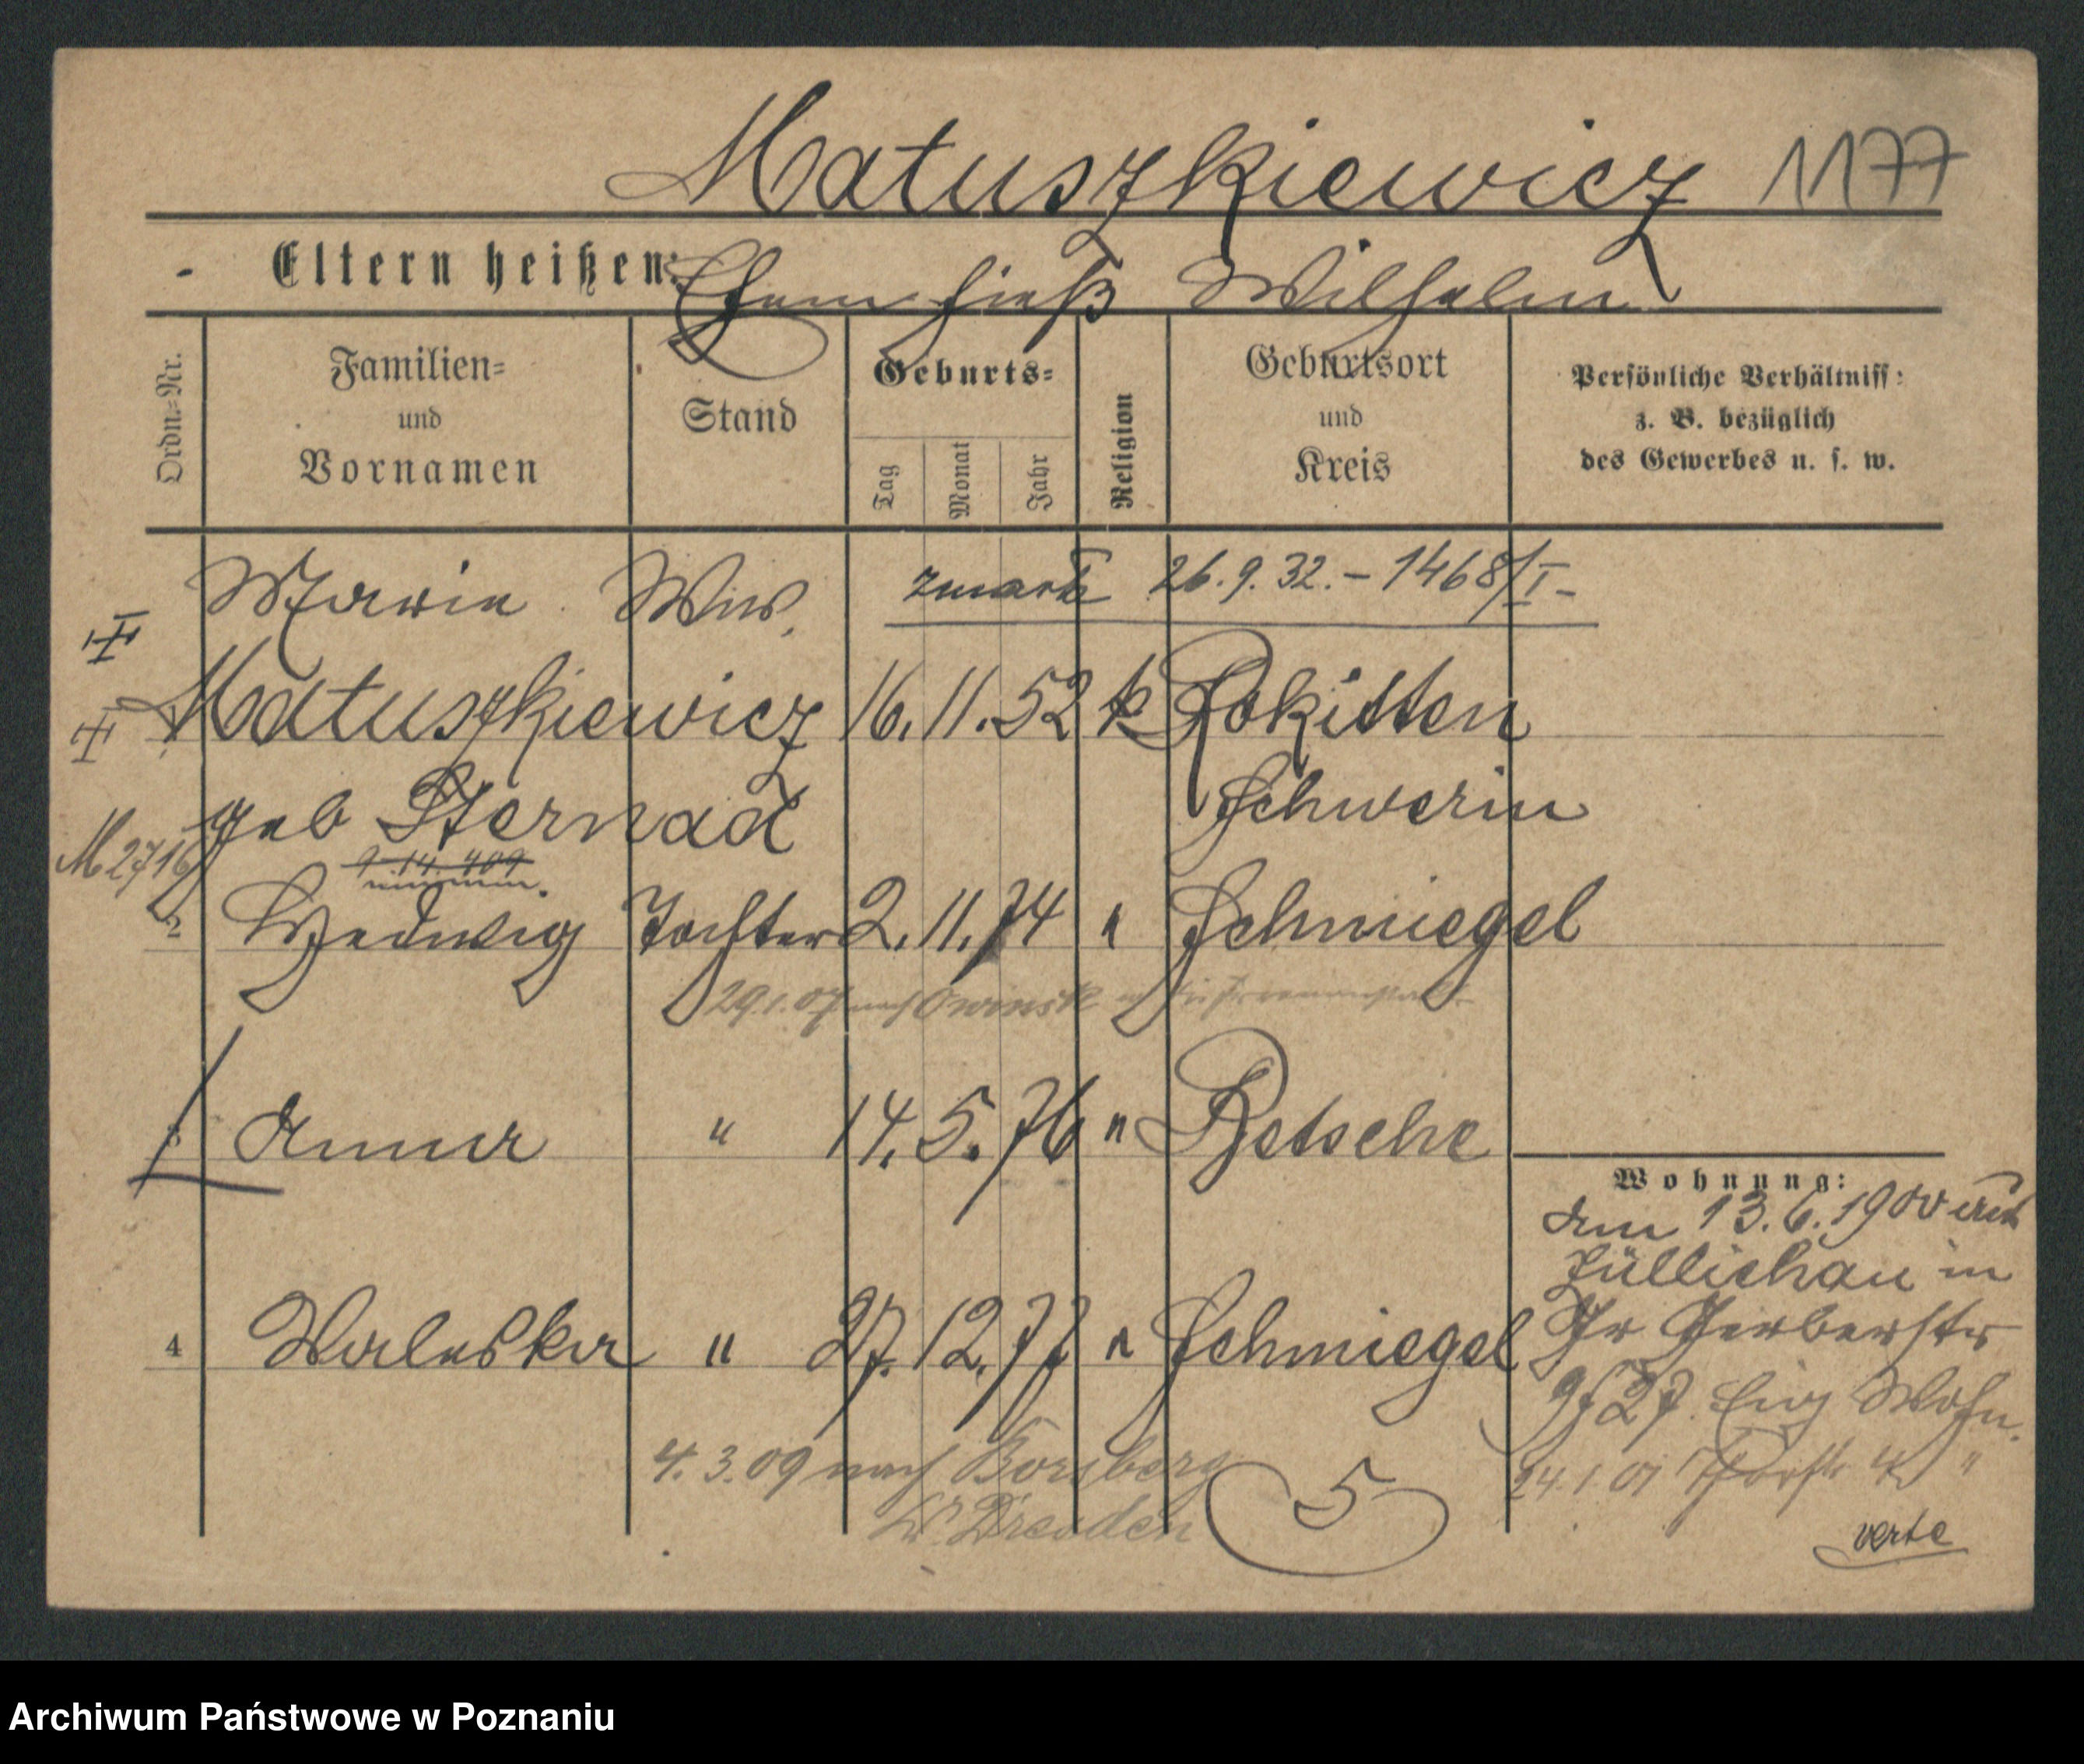 Matuszkiewicz 1177
- Eltern heißen: Ehem hieß Wilhelm
Ordn.=Nr.
Familien= und Vornamen
Stand
Geburts=
Tag
Monat
Jahr
Religion
Geburtsort und Kreis
Persönliche Verhältniss:
z. B. bezüglich
des Gewerbes u. s. w.
Maria Ww. zmarła 26.9.32. – 1468/I –
Matuszkiewicz 16. 11. 52 k Rokitten
geb Sternad Schwerin
M 2716
2 Hedwig Tochter 2. 11. 74 " Schmiegel
29.1.07 nach Owinsk
3 Anna " 14. 5. 76 " Betsche
Wohnung:
Am 13.6.1900 aus
Züllichau in
Gr Gerberstr
4 Waleska " 27. 12. 77 " Schmiegel
9/27. Eig Wohn.
4. 3. 09 nach Borsberg
24.1.01 Thorstr 4 "
Dresden
5
verte
Archiwum Państwowe w Poznaniu